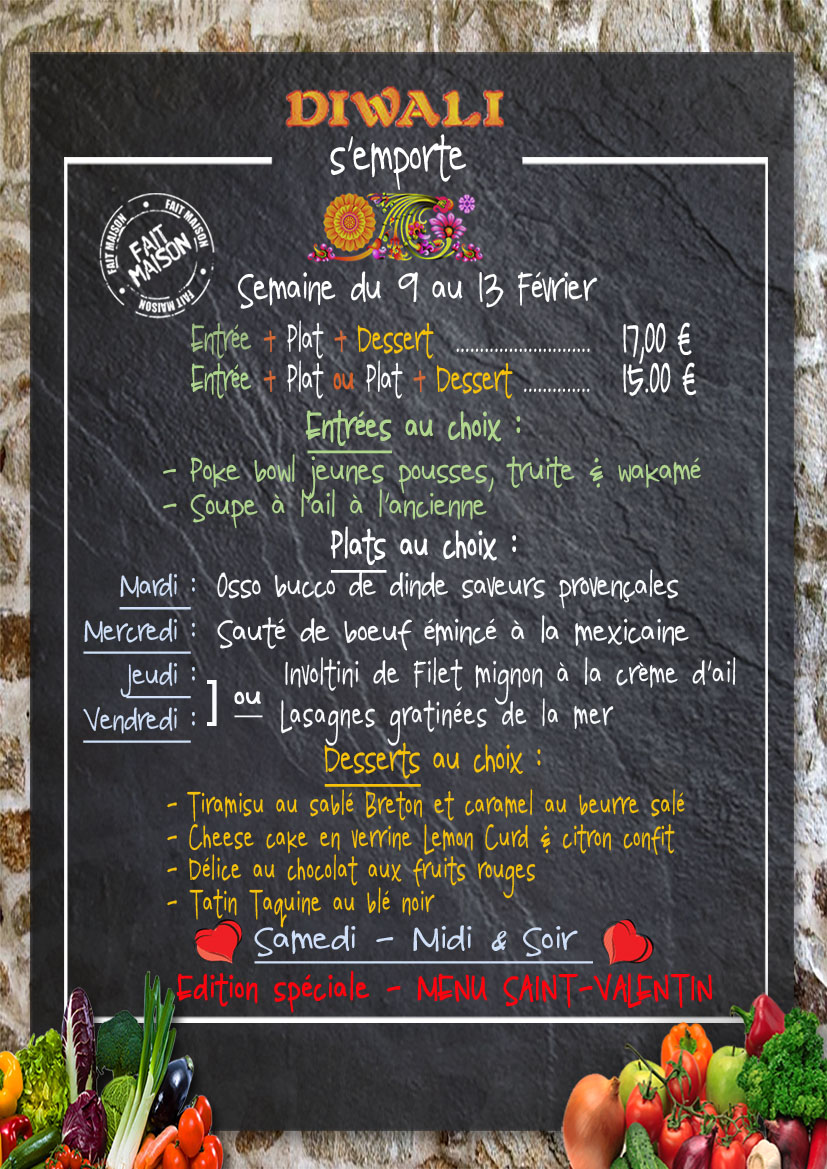 DIWALI
s'emporte
FAIT MAISON
FAIT MAISON
FAIT
MAISON
FAIT MAISON
Semaine du 9 au 13 Février
Entrée + Plat + Dessert ............................. 17,00 €
Entrée + Plat ou Plat + Dessert .............. 15.00 €
Entrées au choix :
- Poke bowl jeunes pousses, truite & wakamé
- Soupe à l'ail à l'ancienne
Plats au choix :
Mardi : Osso bucco de dinde saveurs provençales
Mercredi : Sauté de boeuf émincé à la mexicaine
Jeudi : Involtini de Filet mignon à la crème d'ail
] ou
Vendredi : Lasagnes gratinées de la mer
Desserts au choix :
- Tiramisu au sablé Breton et caramel au beurre salé
- Cheese cake en verrine Lemon Curd & citron confit
- Délice au chocolat aux fruits rouges
- Tatin Taquine au blé noir
Samedi - Midi & Soir
Edition spéciale - MENU SAINT-VALENTIN